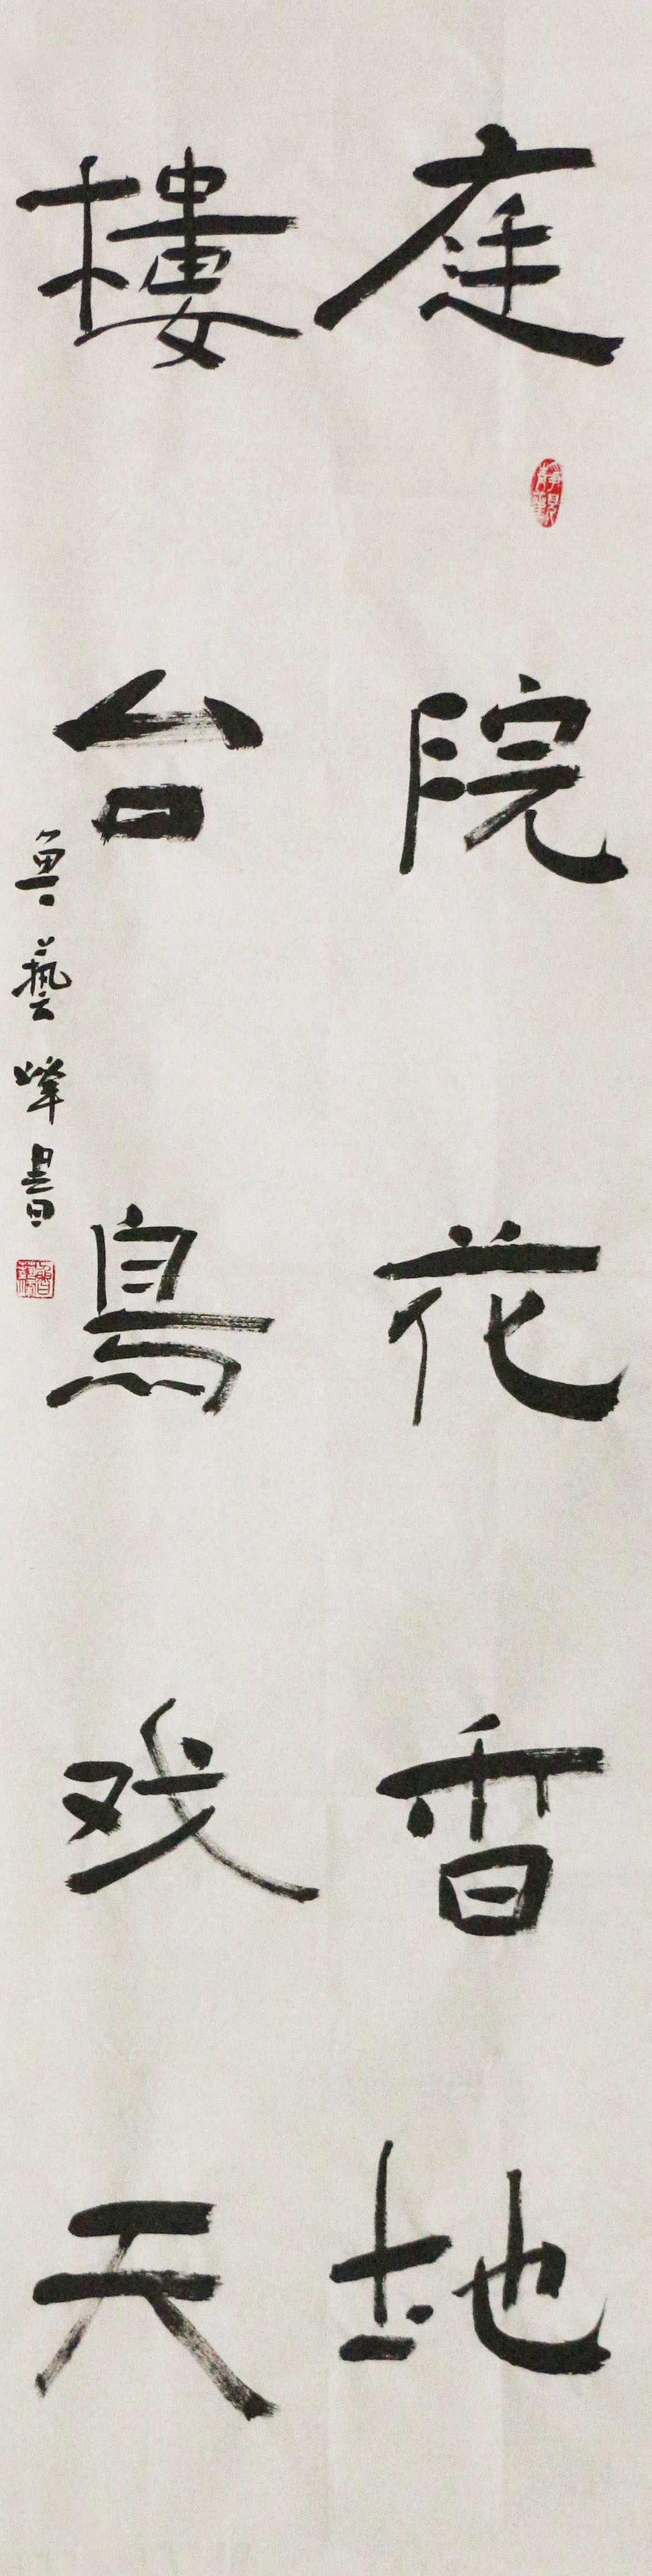 庭院花香地
樓台鳥戏天
魯藝峰書
靜觀